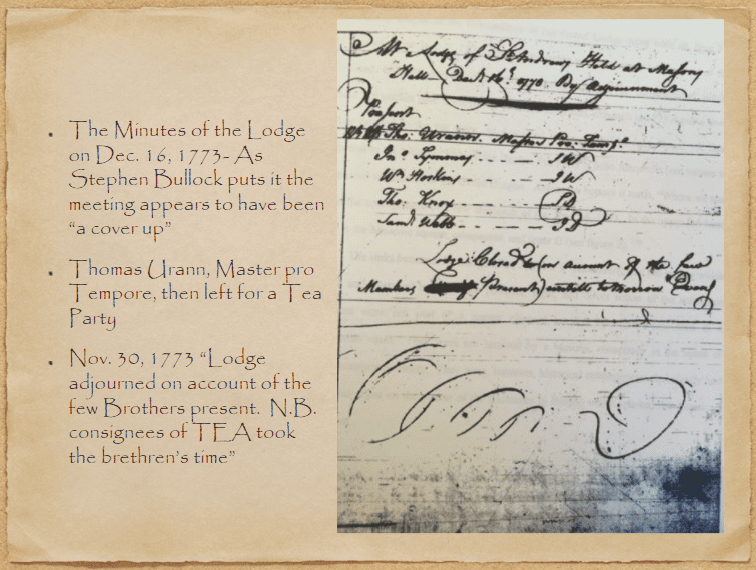 • The Minutes of the Lodge
on Dec. 16, 1773- As
Stephen Bullock puts it the
meeting appears to have been
“a cover up”
• Thomas Urann, Master pro
Tempore, then left for a Tea
Party
• Nov. 30, 1773 “Lodge
adjourned on account of the
few Brothers present. N.B.
consignees of TEA took
the brethren’s time”
At Lodge of St Andrews Held at Masons
Hall Decr 16th 1773. By Adjournment
Present
Tho. Urann. Master Pro. Temp.
Jno. Symmes - - - - - SW
Wm Hoskins - - - - - JW
Tho. Knox - - - - SD
Saml. Webb - - - - - JD
Lodge Closed (on account of the few
Members Present) untill to morrow Eveng